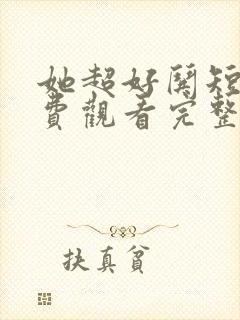 她超好鬨短
費觀看完整
扶真貧